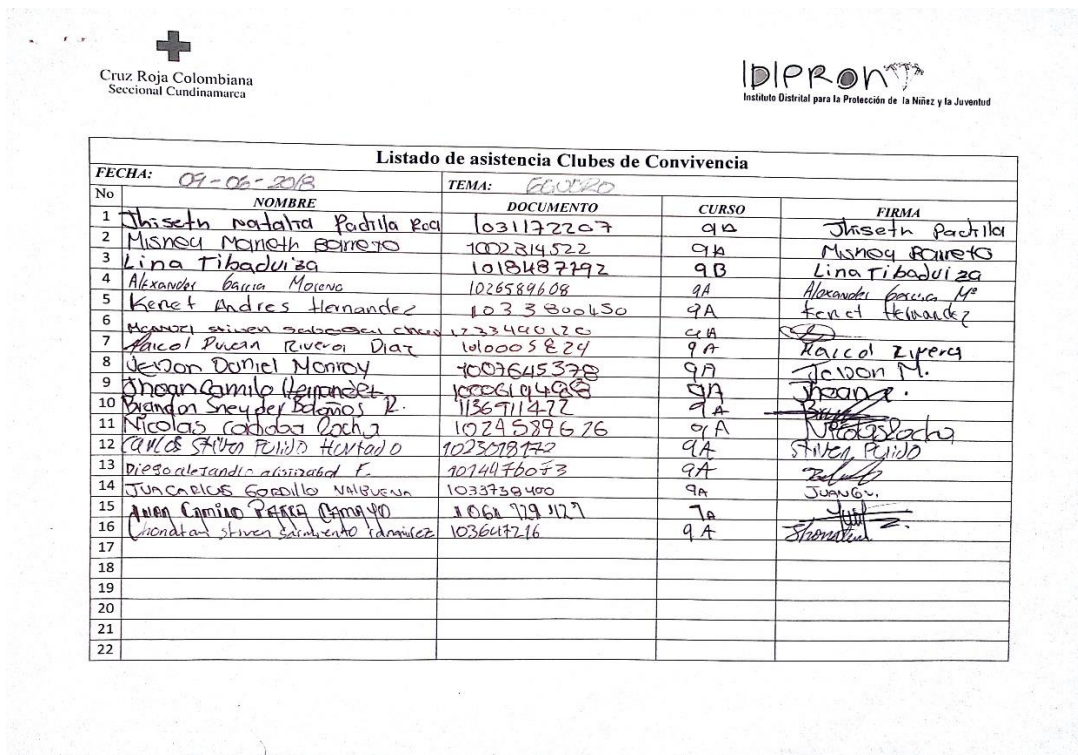 Cruz Roja Colombiana
Seccional Cundinamarca
IDIPRON
Instituto Distrital para la Protección de la Niñez y la Juventud
Listado de asistencia Clubes de Convivencia
FECHA: 09-06-2018 TEMA:
No NOMBRE DOCUMENTO CURSO FIRMA
1 Jhiseth natalia Padilla Roa 1031172207 9A Jhiseth Padilla
2 Misney Marieth Barreto 1002314522 9A Misney Barreto
3 Lina Tibaduiza 1018487292 9B Lina Tibaduiza
4 Alexander Garcia Moreno 1026589608 9A Alexander Garcia Mº
5 Kenet Andres Hernandez 1033800450 9A Kenet Hernandez
6 stiven 9A
7 Rivera Diaz 1010005824 9A
8 Jeison Daniel Monroy 1007645378 9A Jeison M.
9 Jhoan Camilo Hernandez 9A Jhoan
10 Brandon Sneyder Bolaños R. 1136911422 9A
11 Nicolas cordoba Rocha 1024589626 9A Nicolas Rocha
12 Carlos Stiven Pulido Hurtado 9A Stiven Pulido
13 Diego alejandro 1014476073 9A
14 JUAN CARLOS GORDILLO VALBUENA 1033738400 9A
15 Camilo 7A
16 Chonatan Stiven Sarmiento ramirez 103647216 9A
17
18
19
20
21
22